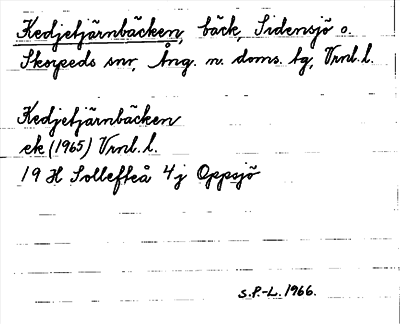 Kedjetjärnbäcken, bäck, Sidensjö o.
Skorpeds snr, Ång. n. doms. tg, Vrnl. l.
Kedjetjärnbäcken
ek (1965) Vrnl. l.
19 H Sollefteå 4 j Oppsjö
S.P.-L. 1966.